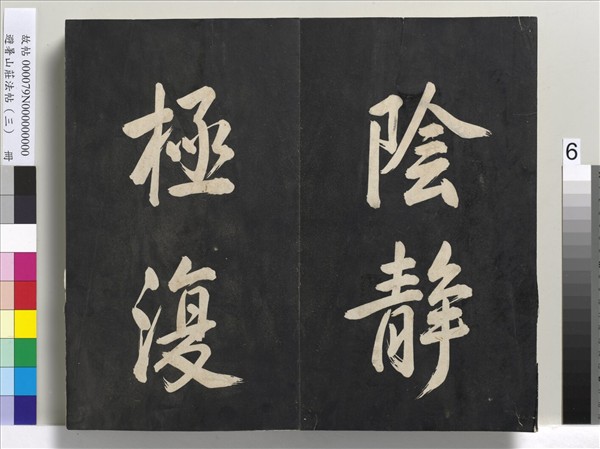 陰静
極復
故帖 000079N000000000
避暑山莊法帖（三） 冊
6